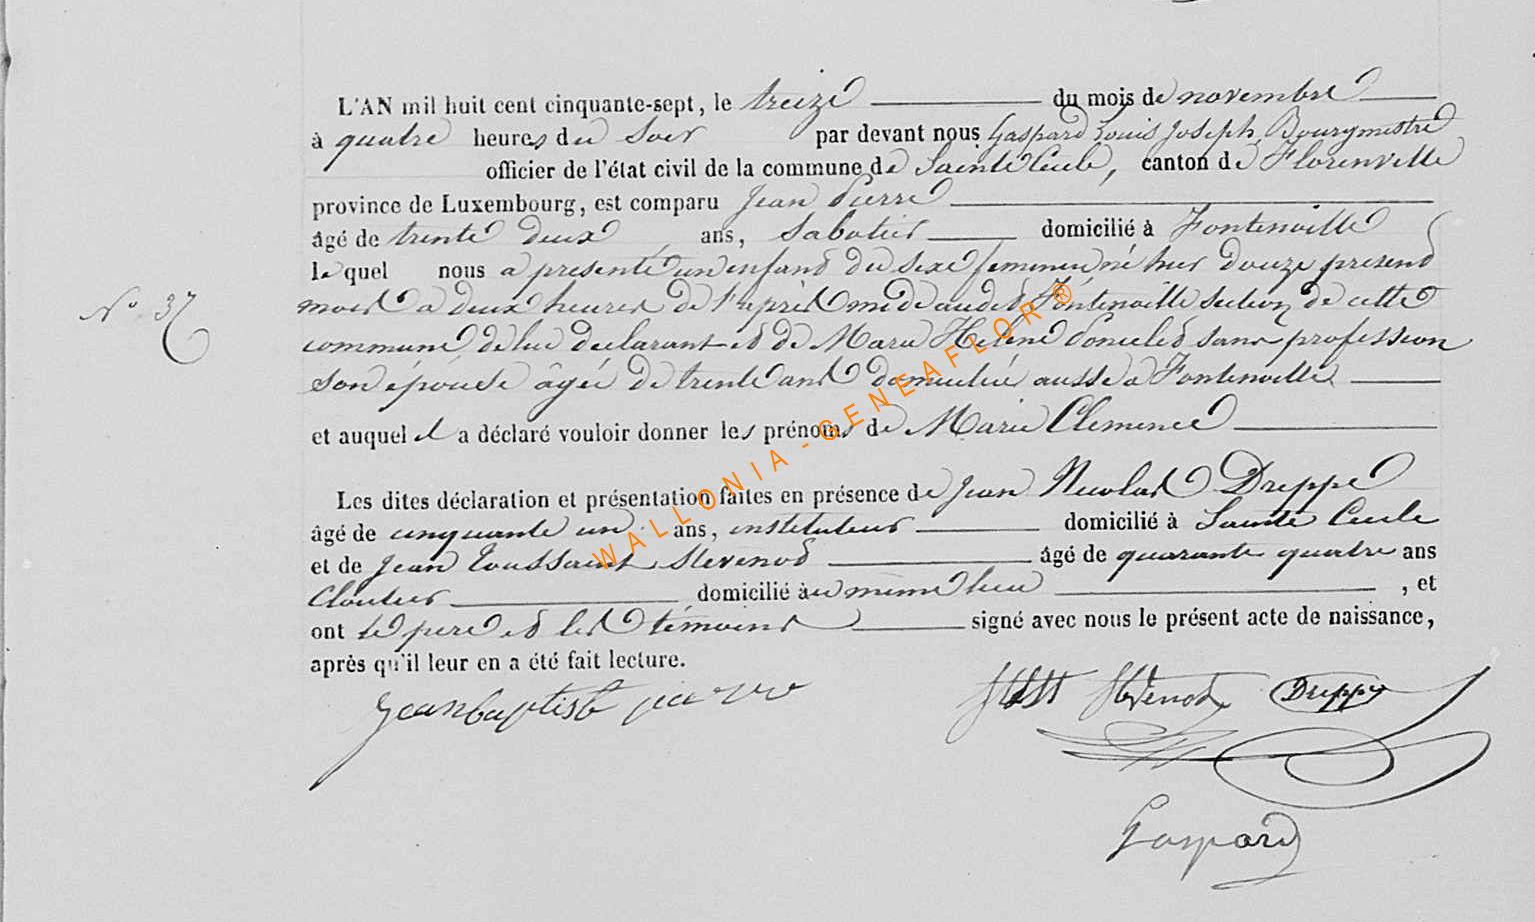 L'AN mil huit cent cinquante-sept, le treize du mois de novembre
à quatre heures du soir par devant nous Gaspard Louis Joseph, Bourgmestre
officier de l'état civil de la commune de Sainte Cécile, canton de Florenville
province de Luxembourg, est comparu Jean Pierre
âgé de trente deux ans, sabotier domicilié à Fontenoille
lequel nous a presenté un enfand du sexe femenin né hier douze presend
N° 37
mois a deux heures de l'après mide audit Fontenoille section de cette
commune de lui declarant et de Marie Helene Poncelet sans profession
son épouse âgée de trente ans domiciliée aussi a Fontenoille
et auquel il a déclaré vouloir donner les prénoms de Marie Clemence
Les dites déclaration et présentation faites en présence de Jean Nicolas Dreppe
âgé de cinquante un ans, instituteur domicilié à Sainte Cecile
et de Jean Toussaint Stevenod âgé de quarante quatre ans
Cloutier domicilié au même lieu , et
ont le pere et les témoins signé avec nous le présent acte de naissance,
après qu'il leur en a été fait lecture.
jean baptiste pierre Dreppe
Gaspard
WALLONIA-GENEAFLOR®